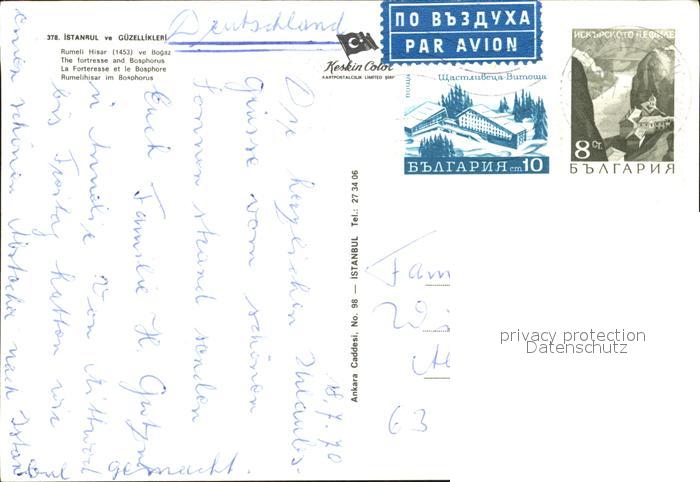 378. İSTANBUL ve GÜZELLİKLERİ
Rumeli Hisar (1453) ve Boğaz
The fortresse and Bosphorus
La Forteresse et le Bosphore
Rumelihisar im Bosphorus
Deutschland
Keskin Color
KARTPOSTALCILIK LIMITED ŞİR
ПО ВЪЗДУХА
PAR AVION
Щастливеца-Витоша
поща
БЪЛГАРИЯ ст 10
ИСКЪРСКОТО ДЕФИЛЕ
8 СТ.
БЪЛГАРИЯ
Ankara Caddesi, No. 98 — ISTANBUL Tel.: 27 34 06
18.7.70
Die herzlichen Urlaubs-
Grüsse vom schönen
Sonnenstrand senden
Euch Familie H.
u. Von Mittwoch
bis Freitag hatten wir
einen schönen Abstecher nach Istan
bul gemacht.
Fam
63
privacy protection
Datenschutz